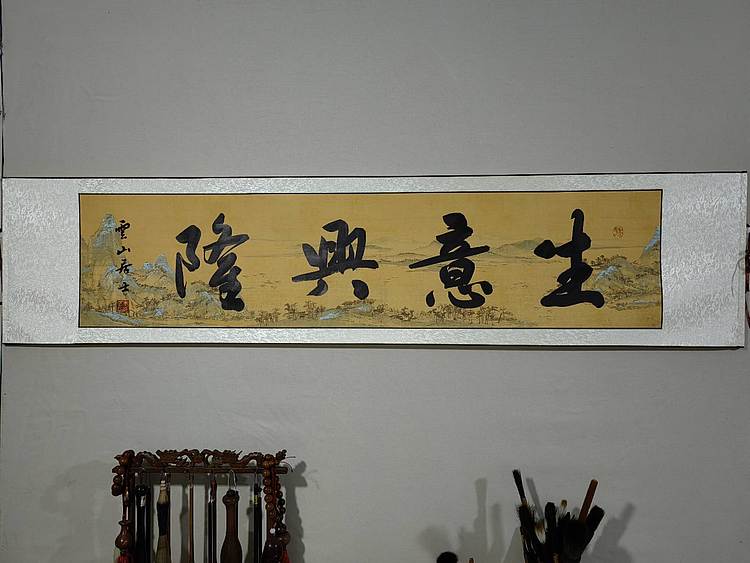 生意興隆
雲山居士